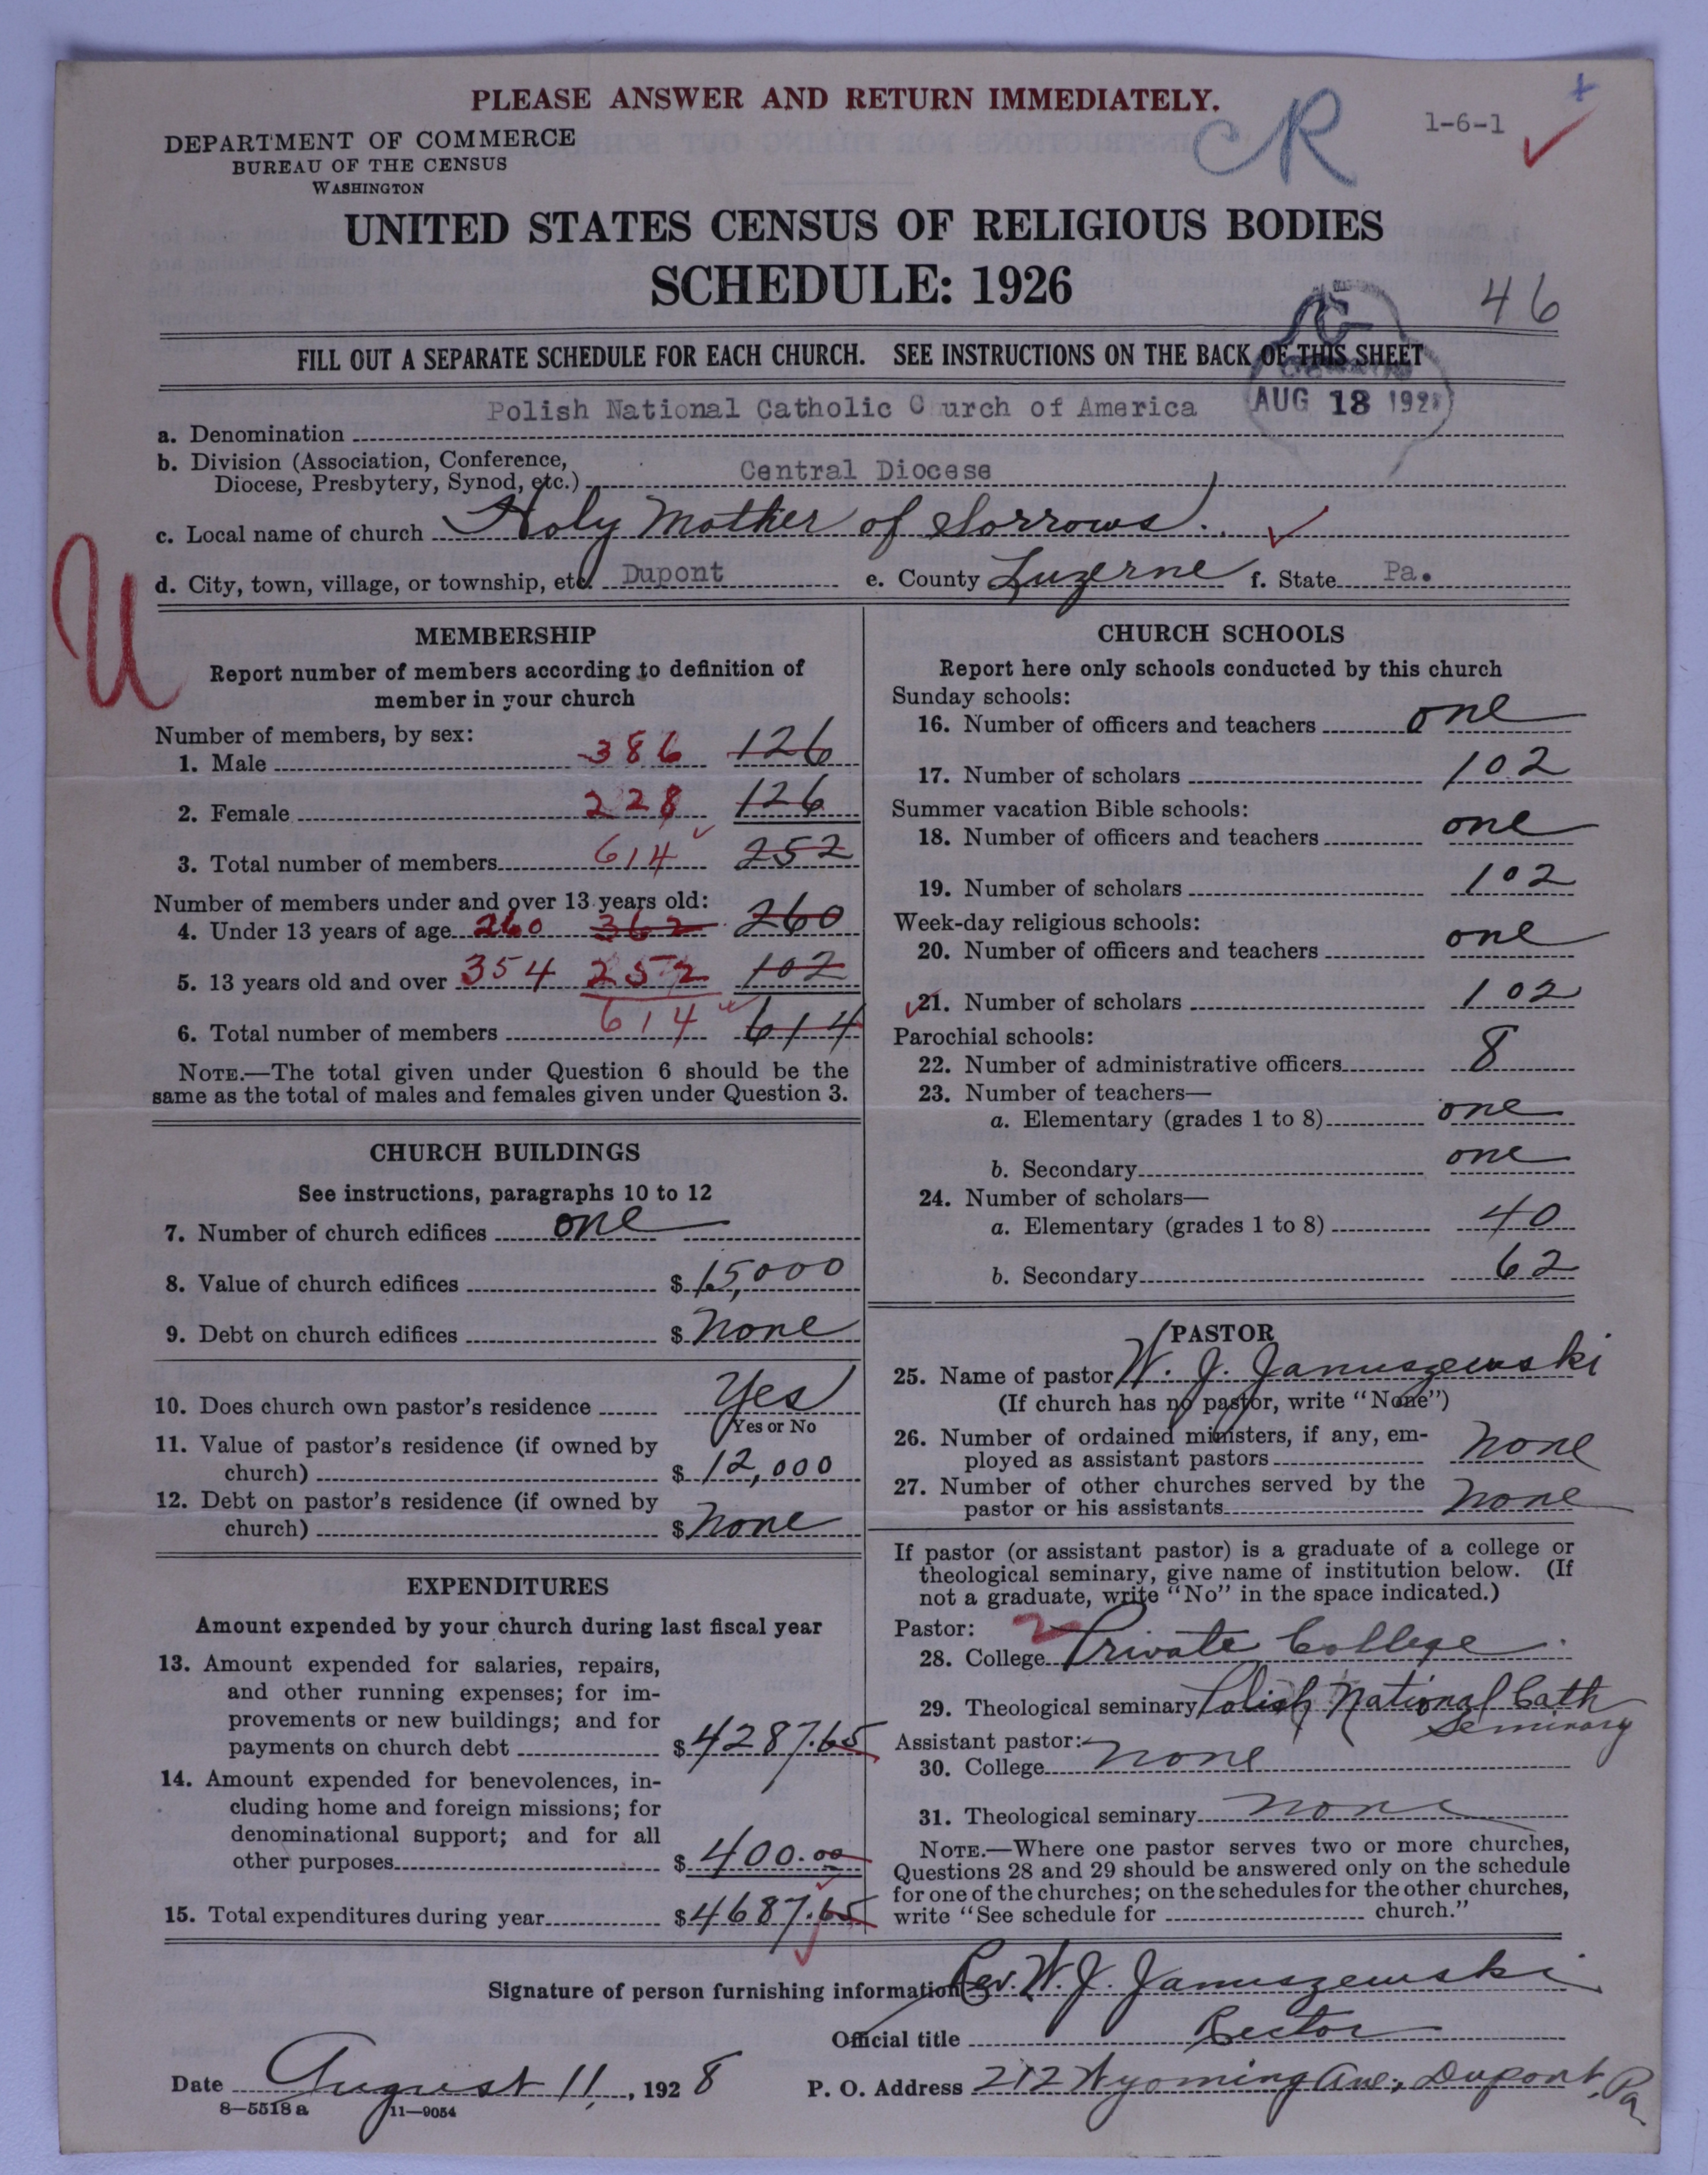 PLEASE ANSWER AND RETURN IMMEDIATELY.
CR
1-6-1
DEPARTMENT OF COMMERCE
BUREAU OF THE CENSUS
WASHINGTON
UNITED STATES CENSUS OF RELIGIOUS BODIES
SCHEDULE: 1926
46
FILL OUT A SEPARATE SCHEDULE FOR EACH CHURCH. SEE INSTRUCTIONS ON THE BACK OF THIS SHEET
AUG 18 1928
a. Denomination Polish National Catholic C urch of America
b. Division (Association, Conference,
Diocese, Presbytery, Synod, etc.) Central Diocese
c. Local name of church Holy Mother of Sorrows.
d. City, town, village, or township, etc. Dupont e. County Luzerne f. State Pa.
U
MEMBERSHIP
Report number of members according to definition of
member in your church
Number of members, by sex:
1. Male 386 126
2. Female 228 126
3. Total number of members 614 252
Number of members under and over 13 years old:
4. Under 13 years of age 260 362 260
5. 13 years old and over 354 252 102
6. Total number of members 614 614
NOTE.—The total given under Question 6 should be the
same as the total of males and females given under Question 3.
CHURCH BUILDINGS
See instructions, paragraphs 10 to 12
7. Number of church edifices one
8. Value of church edifices $ 15,000
9. Debt on church edifices $ None
10. Does church own pastor's residence Yes
Yes or No
11. Value of pastor's residence (if owned by
church) $ 12,000
12. Debt on pastor's residence (if owned by
church) $ None
EXPENDITURES
Amount expended by your church during last fiscal year
13. Amount expended for salaries, repairs,
and other running expenses; for im-
provements or new buildings; and for
payments on church debt $ 4287.65
14. Amount expended for benevolences, in-
cluding home and foreign missions; for
denominational support; and for all
other purposes $ 400.00
15. Total expenditures during year $ 4687.65
CHURCH SCHOOLS
Report here only schools conducted by this church
Sunday schools:
16. Number of officers and teachers one
17. Number of scholars 102
Summer vacation Bible schools:
18. Number of officers and teachers one
19. Number of scholars 102
Week-day religious schools:
20. Number of officers and teachers one
21. Number of scholars 102
Parochial schools:
22. Number of administrative officers 8
23. Number of teachers—
a. Elementary (grades 1 to 8) one
b. Secondary one
24. Number of scholars—
a. Elementary (grades 1 to 8) 40
b. Secondary 62
PASTOR
25. Name of pastor W. J. Januszewski
(If church has no pastor, write "None")
26. Number of ordained ministers, if any, em-
ployed as assistant pastors none
27. Number of other churches served by the
pastor or his assistants none
If pastor (or assistant pastor) is a graduate of a college or
theological seminary, give name of institution below. (If
not a graduate, write "No" in the space indicated.)
Pastor: 2
28. College Private College
29. Theological seminary Polish National Cath
Seminary
Assistant pastor:
30. College none
31. Theological seminary none
NOTE.—Where one pastor serves two or more churches,
Questions 28 and 29 should be answered only on the schedule
for one of the churches; on the schedules for the other churches,
write "See schedule for church."
Signature of person furnishing information Rev. W. J. Januszewski
Official title Rector
Date August 11, 1928 P. O. Address 212 Wyoming Ave., Dupont, Pa
8—5518 a 11—9054